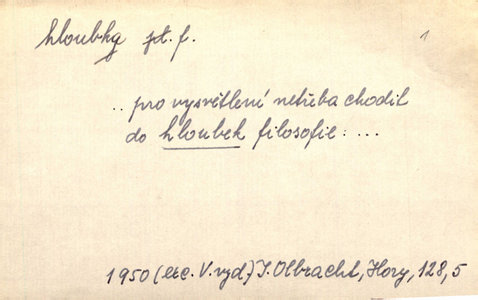 hloubky pt. f. 1
.. pro vysvětlení netřeba chodil
do hloubek filosofie: ...
1950 (exc. V. vyd.) I. Olbracht, Hory, 128,5